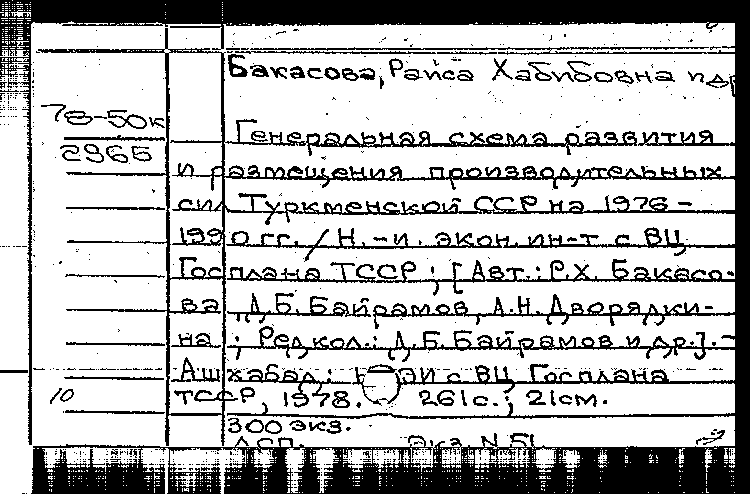 Бакасова, Раиса Хабибовна и др
78-50к
2965
Генеральная схема развития
и размещения производительных
сил Туркменской ССР на 1976-
1990 гг. / Н.-и. экон. ин-т с ВЦ
Госплана ТССР ; [Авт.: Р.Х. Бакасо-
ва, Д.Б. Байрамов, А.Н. Дворядки-
на ; Редкол.: Д.Б. Байрамов и др.]. -
Ашхабад : с ВЦ Госплана
10
ТССР, 1978. - 261с. ; 21см.
300 экз.
ДСП. Экз. N 51